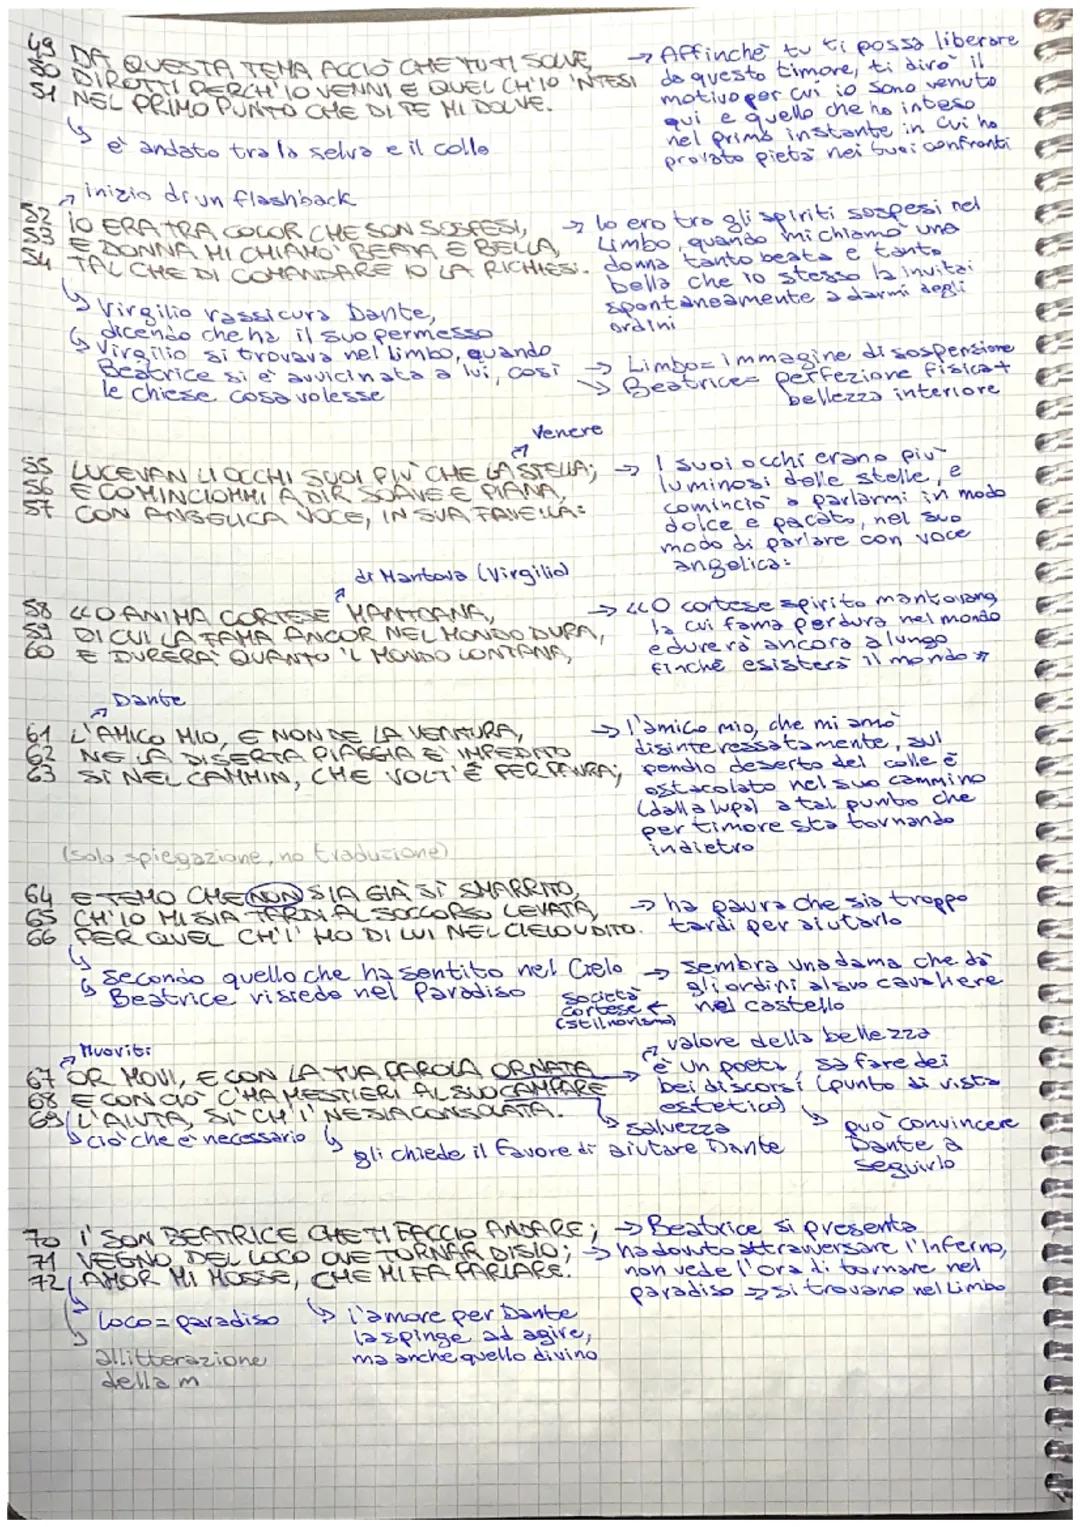 49 DA QUESTA TEMA ACCIÒ CHE TU TI SOLVE,
50 DIROTTI PERCH'IO VENNI E QUEL CH'IO 'NTESI
51 NEL PRIMO PUNTO CHE DI TE MI DOLVE.
→ Affinchè tu ti possa liberare
da questo timore, ti dirò il
motivo per cui io sono venuto
qui e quello che ho inteso
nel primo instante in cui ho
provato pietà nei tuoi confronti
↳ è andato tra la selva e il colle
↗ inizio di un flashback
52 IO ERA TRA COLOR CHE SON SOSPESI,
53 E DONNA MI CHIAMÒ BEATA E BELLA,
54 TAL CHE DI COMANDARE IO LA RICHIESI.
→ Io ero tra gli spiriti sospesi nel
Limbo, quando mi chiamò una
donna tanto beata e tanto
bella che io stesso la invitai
spontaneamente a darmi degli
ordini
↳ Virgilio rassicura Dante,
dicendo che ha il suo permesso
↳ Virgilio si trovava nel limbo, quando
Beatrice si è avvicinata a lui, così
le chiese cosa volesse
→ Limbo= immagine di sospensione
→ Beatrice= perfezione fisica+
bellezza interiore
Venere
55 LUCEVAN LI OCCHI SUOI PIÙ CHE LA STELLA;
56 E COMINCIOMMI A DIR SOAVE E PIANA,
57 CON ANGELICA VOCE, IN SUA FAVELLA:
→ I suoi occhi erano più
luminosi delle stelle, e
cominciò a parlarmi in modo
dolce e pacato, nel suo
modo di parlare con voce
angelica:
di Mantova (Virgilio)
58 «O ANIMA CORTESE MANTOANA,
59 DI CUI LA FAMA ANCOR NEL MONDO DURA,
60 E DURERÀ QUANTO 'L MONDO LONTANA,
→ «O cortese spirito mantovano
la cui fama perdura nel mondo
e durerà ancora a lungo
finchè esisterà il mondo»
Dante
61 L'AMICO MIO, E NON DE LA VENTURA,
62 NE LA DISERTA PIAGGIA È IMPEDITO
63 SÌ NEL CAMMIN, CHE VOLT'È PER PAURA;
→ l'amico mio, che mi amò
disinteressatamente, sul
pendio deserto del colle è
ostacolato nel suo cammino
(dalla lupa) a tal punto che
per timore sta tornando
indietro
(solo spiegazione, no traduzione)
64 E TEMO CHE NON SIA GIÀ SÌ SMARRITO,
65 CH'IO MI SIA TARDI AL SOCCORSO LEVATA,
66 PER QUEL CH'I' HO DI LUI NEL CIELO UDITO.
→ ha paura che sia troppo
tardi per aiutarlo
↳ Secondo quello che ha sentito nel Cielo
↳ Beatrice risiede nel Paradiso
→ sembra una dama che dà
gli ordini al suo cavaliere
nel castello
società
cortese ←
(stilnovismo)
Muoviti
67 OR MOVI, E CON LA TUA PAROLA ORNATA
68 E CON CIÒ C'HA MESTIERI AL SUO CAMPARE
69 L'AIUTA, SÌ CH'I' NE SIA CONSOLATA.
valore della bellezza
→ è un poeta, sa fare dei
bei discorsi (punto di vista
estetico)
↳ salvezza
↳ può convincere
Dante a
seguirlo
↳ ciò che è necessario
↳ gli chiede il favore di aiutare Dante
70 I' SON BEATRICE CHE TI FACCIO ANDARE;
71 VEGNO DEL LOCO OVE TORNAR DISIO;
72 AMOR MI MOSSE, CHE MI FA PARLARE.
→ Beatrice si presenta
→ ha dovuto attraversare l'Inferno,
non vede l'ora di tornare nel
paradiso → si trovano nel Limbo
↳ Loco = paradiso
↳ l'amore per Dante
la spinge ad agire,
ma anche quello divino
↳ allitterazione
della m